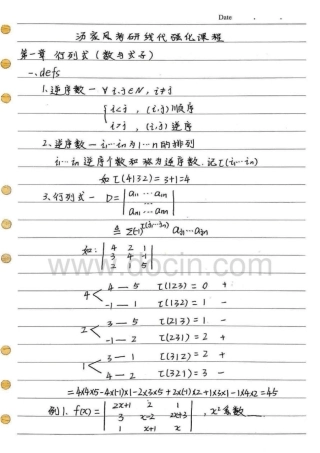 Date
汤家凤考研线代强化课程
第一章 行列式(数与式子)
一、defs
1、逆序数 — ∀ i,j∈N, i≠j
{ i<j , (i,j)顺序
i>j , (i,j)逆序
2、逆序数 — i₁…iₙ为1…n的排列
i₁…iₙ逆序个数和称为逆序数. 记τ(i₁…iₙ)
如 τ(4132)=3+1=4
3、行列式 — D= | a₁₁ … a₁ₙ |
| aₙ₁ … aₙₙ |
≜ Σ(-1)
如: | 4 2 1 |
| 3 4 -1 |
| 2 1 5 |
www.docin.com
4 < 4 — 5 τ(123)=0 +
-1 — 1 τ(132)=1 -
2 < 3 — 5 τ(213)=1 -
-1 — 2 τ(231)=2 +
1 < 3 — 1 τ(312)=2 +
4 — 2 τ(321)=3 -
=4×4×5-4×(-1)×1-2×3×5+2×(-1)×2+1×3×1-1×4×2=45
例1. f(x)= | 2x+1 2 1 |
| 3 x-2 2x+3 | , x²系数
| 1 x+1 x |